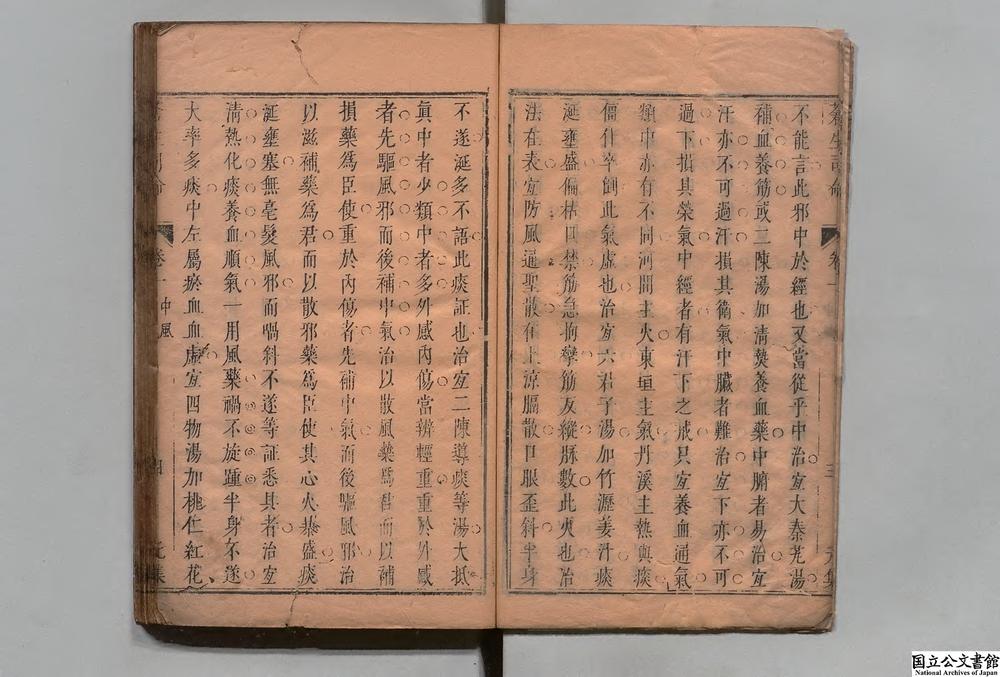 不能言此邪中於經也又當從乎中治宜大秦艽湯
補血養筋或二陳湯加清熒養血藥中腑者易治宜
汗亦不可過汗損其衛氣中臟者難治宜下亦不可
過下損其榮氣中經者有汗下之戒只宜養血通氣
類中亦有不同河間主火東垣主氣丹溪主熱與痰
僵仆卒倒此氣虛也治宜六君子湯加竹瀝姜汁痰
涎壅盛偏枯口禁筋急拘攣筋反縱脉數此火也治
法在表宜防風通聖散在上涼膈散口眼歪斜半身
不遂涎多不語此痰証也治宜二陳導痰等湯大抵
眞中者少類中者多外感內傷當辨輕重重於外感
者先驅風邪而後補中氣治以散風藥爲君而以補
損藥爲臣使重於內傷者先補中氣而後驅風邪治
以滋補藥爲君而以散邪藥爲臣使其心火暴盛痰
涎壅塞無毫髮風邪而喎斜不遂等証悉具者治宜
清熱化痰養血順氣一用風藥禍不旋踵半身不遂
大率多痰中左屬瘀血血虛宜四物湯加桃仁紅花
卷一 中風 四 元集
国立公文書館
National Archives of Japan